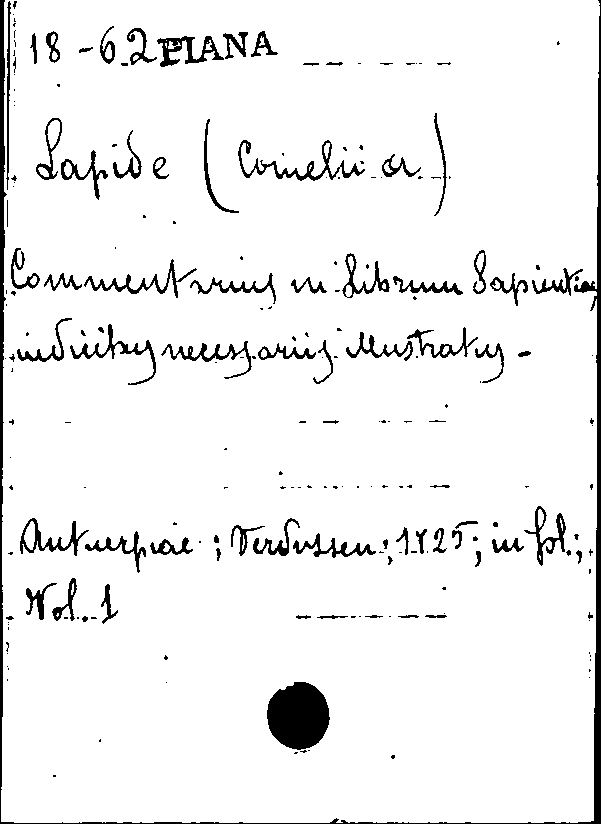 18-62 PIANA
Lapide (Cornelii a)
Commentarius in Librum Sapientiae,
indicibus necessariis illustratus -
Antuerpiae; Verdussen; 1725; in fol.;
Vol. 1